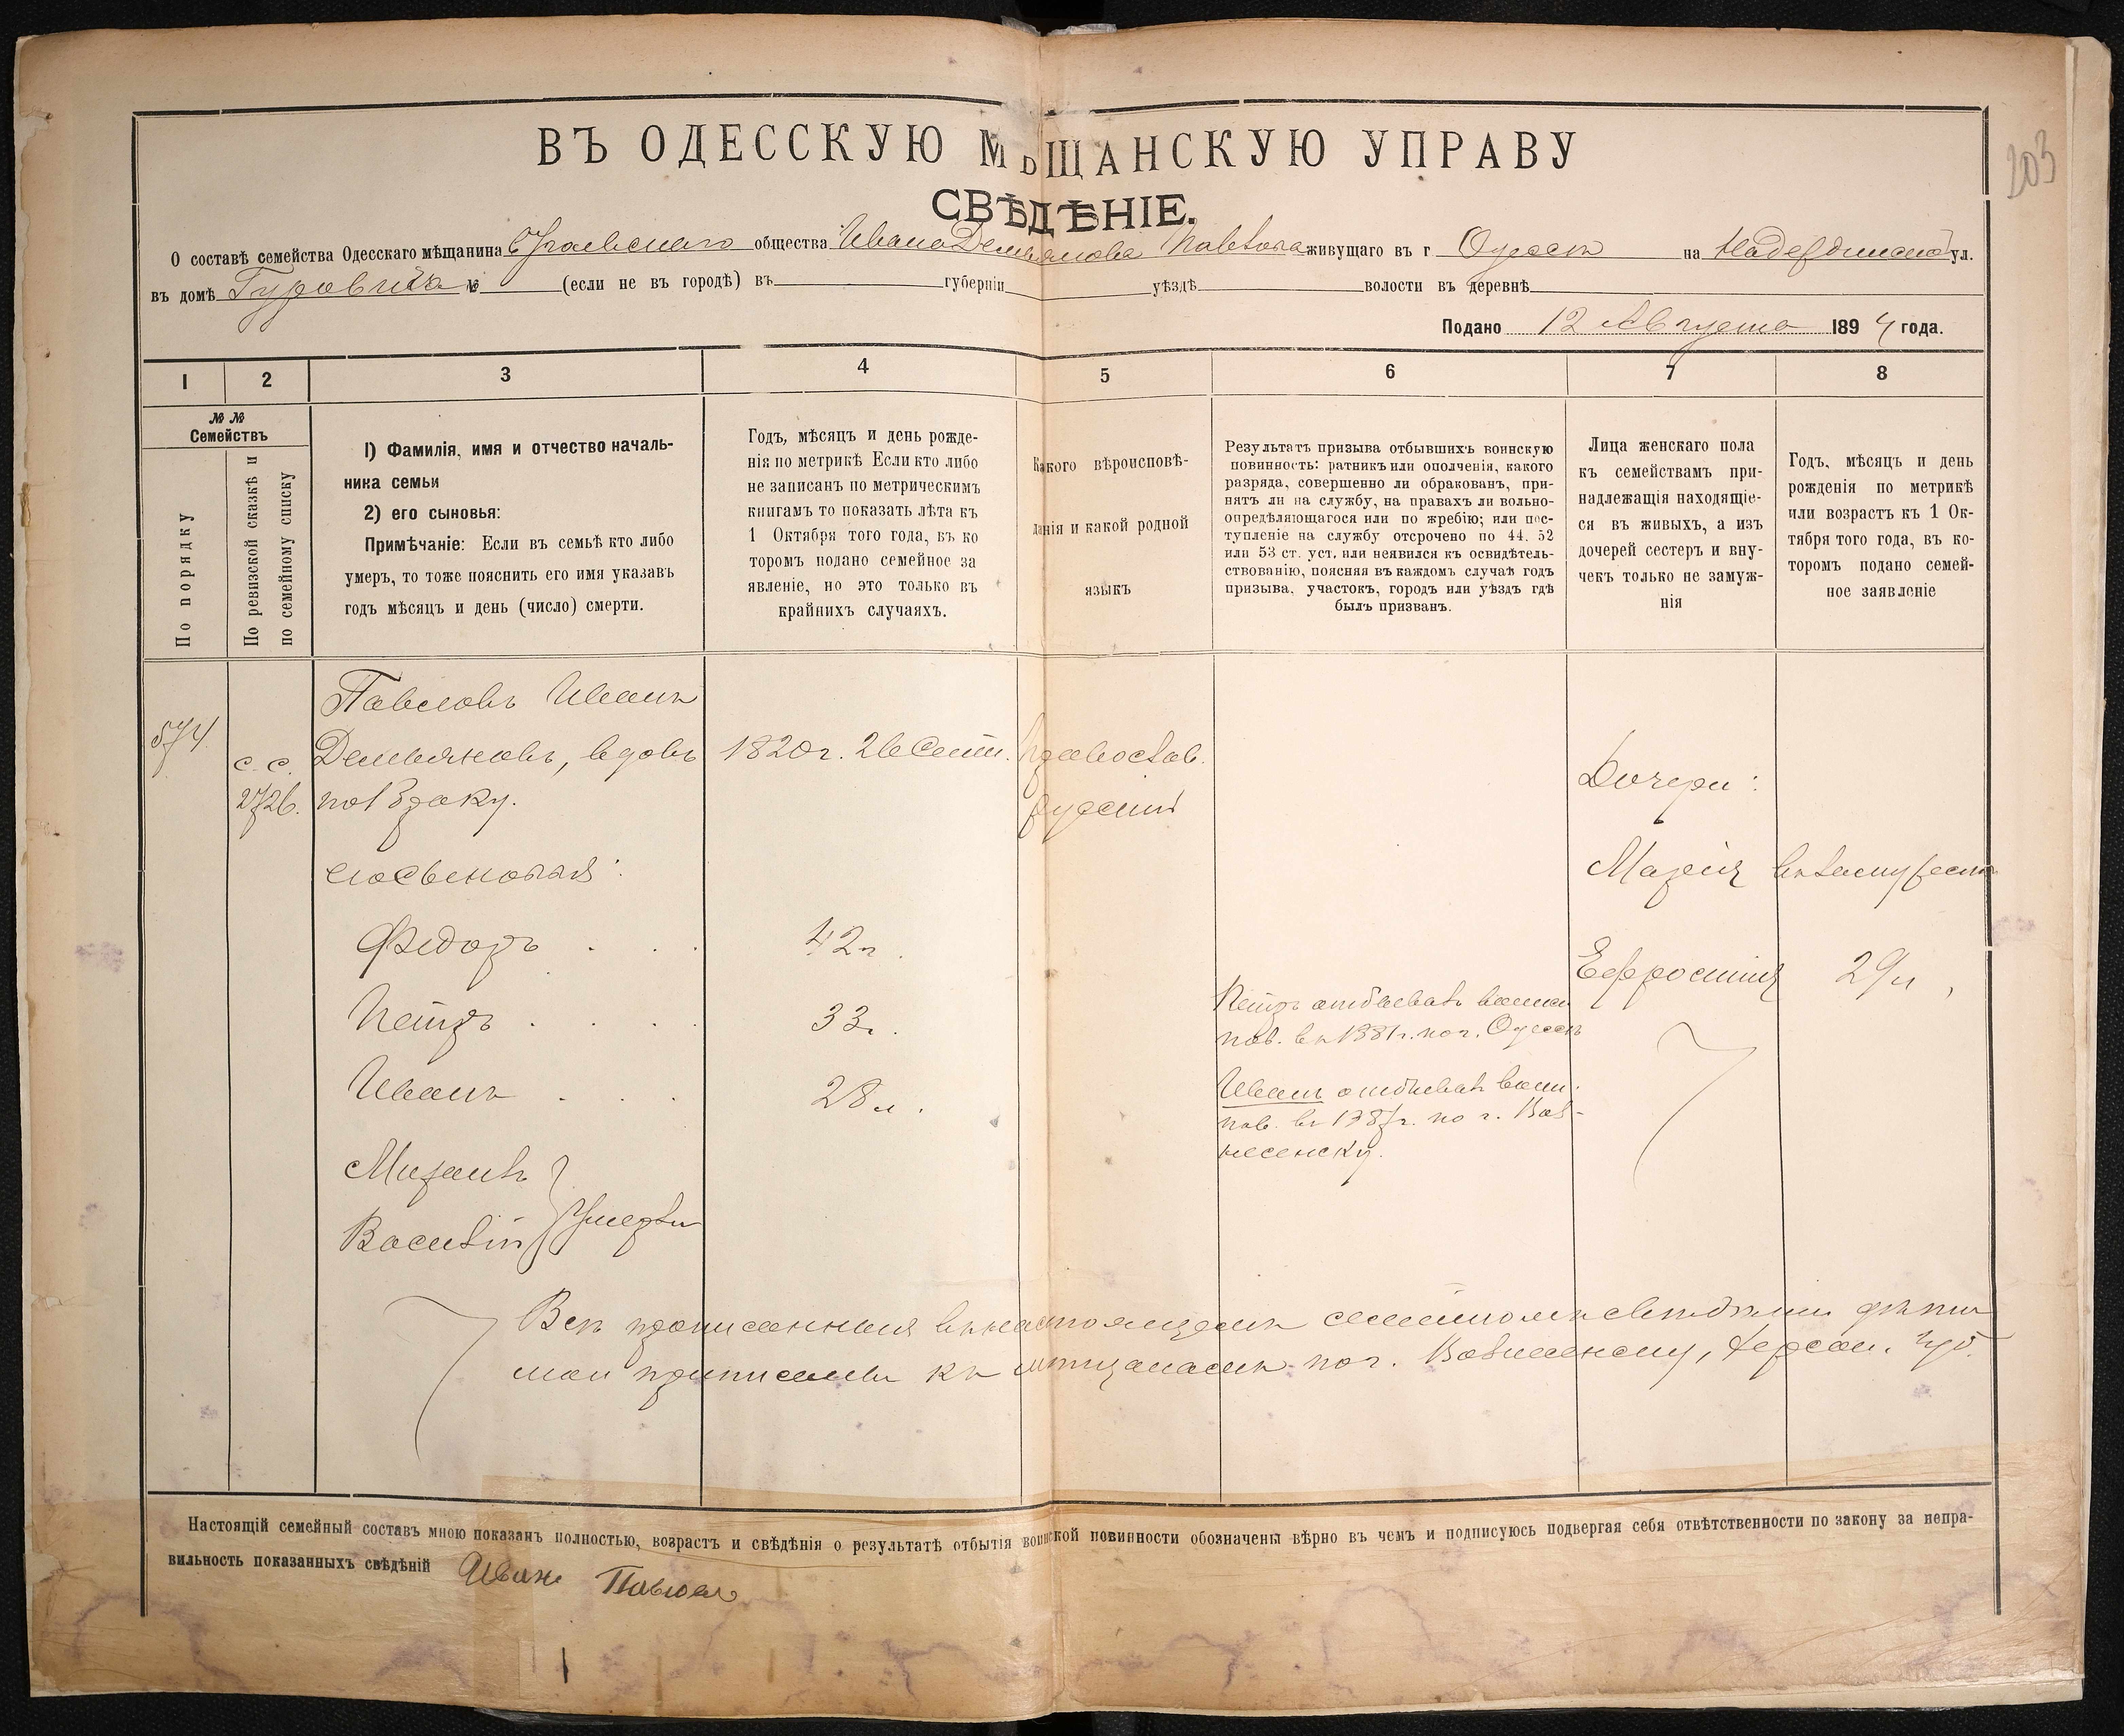 203
ВЪ ОДЕССКУЮ МѢЩАНСКУЮ УПРАВУ
СВѢДѢНІЕ.
О составѣ семейства Одесскаго мѣщанина общества Ивана Демьянова Павлова живущаго въ г Одессѣ на ул.
въ домѣ Гуровича № (если не въ городѣ) въ губерніи уѣздѣ волости въ деревнѣ
Подано 12 Августа 1894 года.
1 2 3 4 5 6 7 8
№ №
Семействъ
По порядку
По ревизской сказкѣ и
по семейному списку
1) Фамилія, имя и отчество началь-
ника семьи
2) его сыновья:
Примѣчаніе: Если въ семьѣ кто либо
умеръ, то тоже пояснить его имя указавъ
годъ мѣсяцъ и день (число) смерти.
Годъ, мѣсяцъ и день рожде-
нія по метрикѣ Если кто либо
не записанъ по метрическимъ
книгамъ то показать лѣта къ
1 Октября того года, въ ко
торомъ подано семейное за
явленіе, но это только въ
крайнихъ случаяхъ.
Какого вѣроисповѣ-
данія и какой родной
языкъ
Результатъ призыва отбывшихъ воинскую
повинность: ратникъ или ополченія, какого
разряда, совершенно ли обракованъ, при-
нятъ ли на службу, на правахъ ли вольно-
опредѣляющагося или по жребію; или пос-
тупленіе на службу отсрочено по 44. 52
или 53 ст. уст. или неявился къ освидѣтель-
ствованію, поясняя въ каждомъ случаѣ годъ
призыва, участокъ, городъ или уѣздъ гдѣ
былъ призванъ.
Лица женскаго пола
къ семействамъ при-
надлежащія находящіе-
ся въ живыхъ, а изъ
дочерей сестеръ и вну-
чекъ только не замуж-
нія
Годъ, мѣсяцъ и день
рожденія по метрикѣ
или возрастъ къ 1 Ок-
тября того года, въ ко-
торомъ подано семей-
ное заявленіе
574
с. с.
2726.
Павловъ Иванъ
Демьяновъ, вдовъ
по 1 браку.
1820г. 26 Сент.
Православ.
русскій
сыновья:
Федоръ . . .
42г.
Петръ . . .
33г.
Иванъ . . .
28л.
Михаилъ
Василій
Умерли
Петръ отбывалъ воинск.
пов. въ 1881г. по г. Одессѣ
Иванъ отбывалъ воин.
пов. въ 1887г. по г. Воз-
несенску.
Дочери:
Марія въ замужест.
Ефросинія 29л.
Всѣ прописанныя въ настоящемъ семейномъ свѣдѣніи дѣти
мои приписаны къ мѣщанамъ по г. Вознесенску, Херсон. губ.
Настоящій семейный составъ мною показанъ полностью, возрастъ и свѣдѣнія о результатѣ отбытія воинской повинности обозначены вѣрно въ чемъ и подписуюсь подвергая себя отвѣтственности по закону за непра-
вильность показанныхъ свѣдѣній Иванъ Павлов